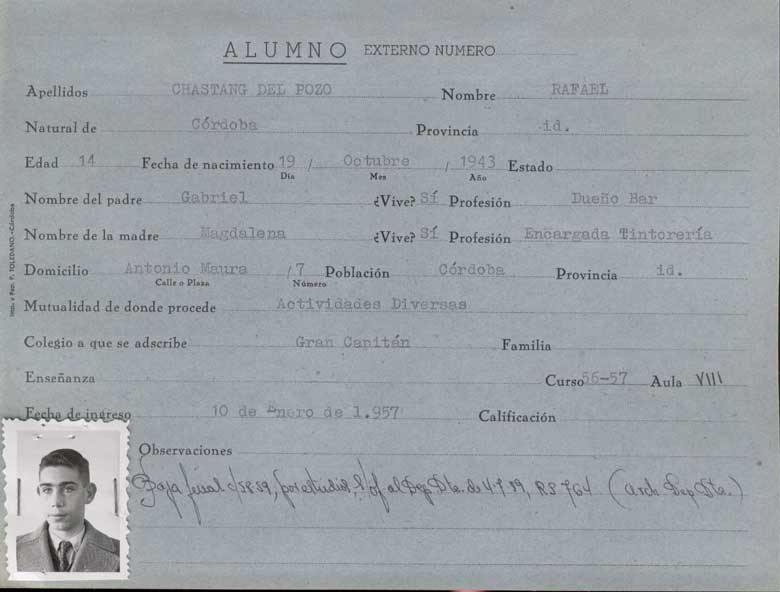 ALUMNO EXTERNO NUMERO
Apellidos CHASTANG DEL POZO Nombre RAFAEL
Natural de Córdoba Provincia id.
Edad 14 Fecha de nacimiento 19 / Octubre / 1943 Estado
Día Mes Año
Nombre del padre Gabriel ¿Vive? Sí Profesión Dueño Bar
Nombre de la madre Magdalena ¿Vive? Sí Profesión Encargada Tintorería
Domicilio Antonio Maura / 7 Población Córdoba Provincia id.
Calle o Plaza Número
Mutualidad de donde procede Actividades Diversas
Colegio a que se adscribe Gran Capitán Familia
Enseñanza Curso 56-57 Aula VIII
Fecha de ingreso 10 de Enero de 1.957 Calificación
Observaciones
Baja final c/58.59, por estudios, s/of al Dep. Dta. de 4-7-59, RS 764 (Arch. Dep. Dta.)
TOLEDANO.-Córdoba